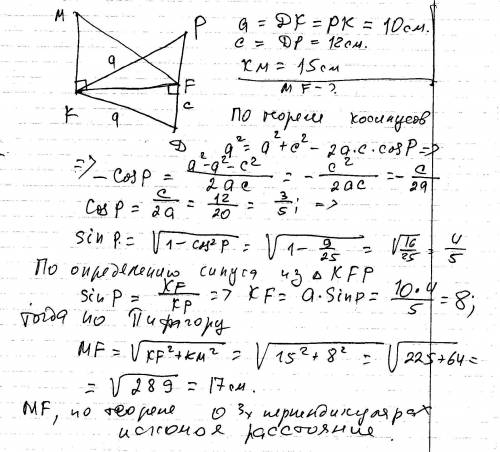 M
P
a
F
K
a
c
Д
a = ДК = PK = 10 см.
c = ДР = 12 см.
КМ = 15 см
MF - ?
По теореме косинусов
a² = a² + c² - 2a·c·cosP =>
=> -cosP = (a² - a² - c²)/(2ac) = -c²/(2ac) = -c/(2a)
cosP = c/(2a) = 12/20 = 3/5; =>
sinP = √(1 - cos²P) = √(1 - 9/25) = √(16/25) = 4/5
По определению синуса из Δ KFP
sinP = KF/KP => KF = a·SinP = (10·4)/5 = 8;
тогда по Пифагору
MF = √(KF² + KM²) = √(15² + 8²) = √(225 + 64) =
= √289 = 17 см.
MF, по теореме о 3х перпендикулярах
искомое расстояние.